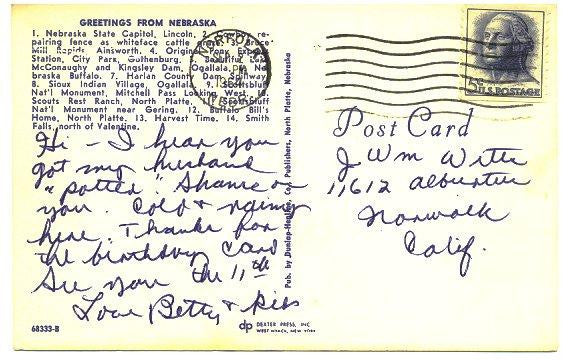 GREETINGS FROM NEBRASKA
1. Nebraska State Capitol, Lincoln. 2. Cowboy re-
pairing fence as whiteface cattle graze. 3. Bruce
Mill Rapids, Ainsworth. 4. Original Pony Express
Station, City Park, Gothenburg. 5. Beautiful Lake
McConaughy and Kingsley Dam, Ogallala. 6. Ne-
braska Buffalo. 7. Harlan County Dam Spillway
8. Sioux Indian Village, Ogallala. 9. Scottsbluff
Nat'l Monument, Mitchell Pass Looking West. 10.
Scouts Rest Ranch, North Platte. 11. Scottsbluff
Nat'l Monument near Gering. 12. Buffalo Bill's
Home, North Platte. 13. Harvest Time. 14. Smith
Falls, north of Valentine.
Hi - I hear you
got my husband
"potted". Shame on
you. Cold & rainy
here. Thanks for
the birthday card
See you the 11th
Love Betty & kids
68333-B
Pub. by Dunlap-Henline, Co., Publishers, North Platte, Nebraska
dp DEXTER PRESS, INC
WEST NYACK, NEW YORK
NORTON
PM
5c U.S. POSTAGE
Post Card
J Wm Witter
11612 Alburtus
Norwalk
Calif.